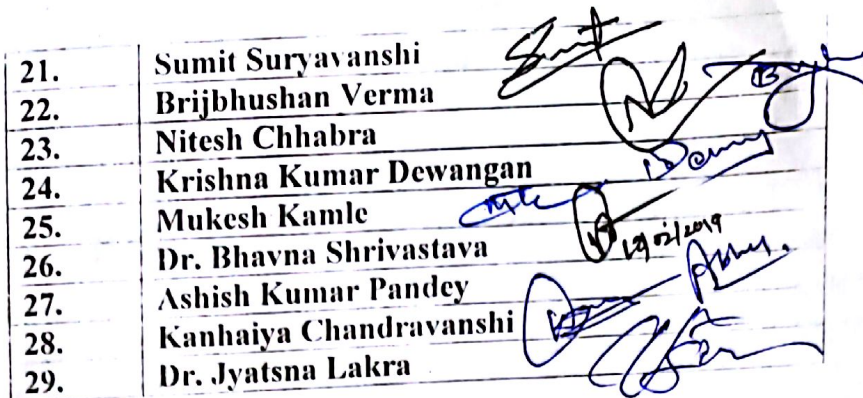 21. Sumit Suryavanshi
22. Brijbhushan Verma
23. Nitesh Chhabra
24. Krishna Kumar Dewangan
25. Mukesh Kamle
26. Dr. Bhavna Shrivastava
27. Ashish Kumar Pandey
28. Kanhaiya Chandravanshi
29. Dr. Jyatsna Lakra